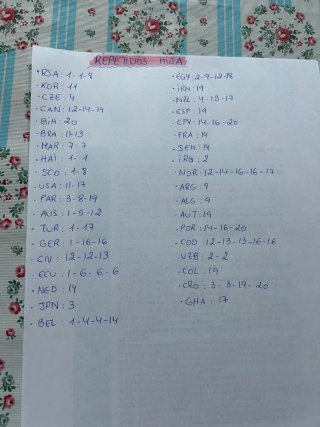 REPETIDOS HIJA
• RSA: 1-1-8
• KOR: 11
• CZE: 4
• CAN: 12-14-14
• BIH: 20
• BRA: 11-13
• MAR: 7-7
• HAÍ: 1-1
• SCO: 1-8
• USA: 11-17
• PAR: 3-8-19
• AUS: 1-5-12
• TUR: 1-17
• GER: 1-16-16
• CIV: 12-12-13
• ECU: 1-6-6-6
• NED: 14
• JPN: 3
• BEL: 1-4-4-14
• EGY: 2-9-12-18
• IRN: 19
• NZL: 4-13-17
• ESP: 19
• CPV: 14-16-20
• FRA: 14
• SEN: 14
• IRQ: 2
• NOR: 12-14-16-16-17
• ARG: 9
• ALG: 9
• AUT: 19
• POR: 14-16-20
• COD: 12-13-13-16-16
UZB: 2-2
• COL: 19
• CRO: 3-3-19-20
• GHA: 17